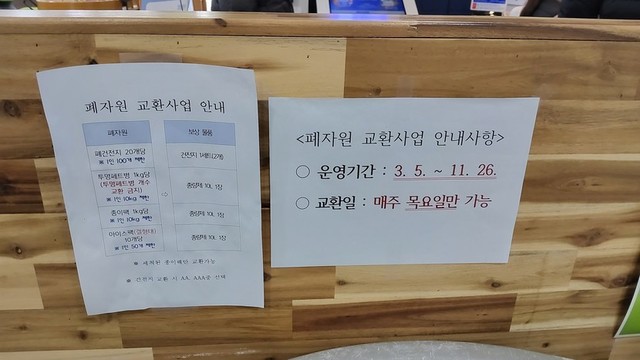 폐자원 교환사업 안내
폐자원
보상 물품
폐건전지 20개당
※ 1인 100개 제한
건전지 1세트(2개)
투명페트병 1kg당
(투명페트병 개수
교환 금지)
※ 1인 10kg 제한
종량제 10L 1장
종이팩 1kg당
※ 1인 10kg 제한
종량제 10L 1장
아이스팩(젤형태)
10개당
※ 1인 50개 제한
종량제 10L 1장
※ 세척된 종이팩만 교환가능
※ 건전지 교환 시 AA, AAA중 선택
<폐자원 교환사업 안내사항>
○ 운영기간 : 3. 5. ~ 11. 26.
○ 교환일 : 매주 목요일만 가능